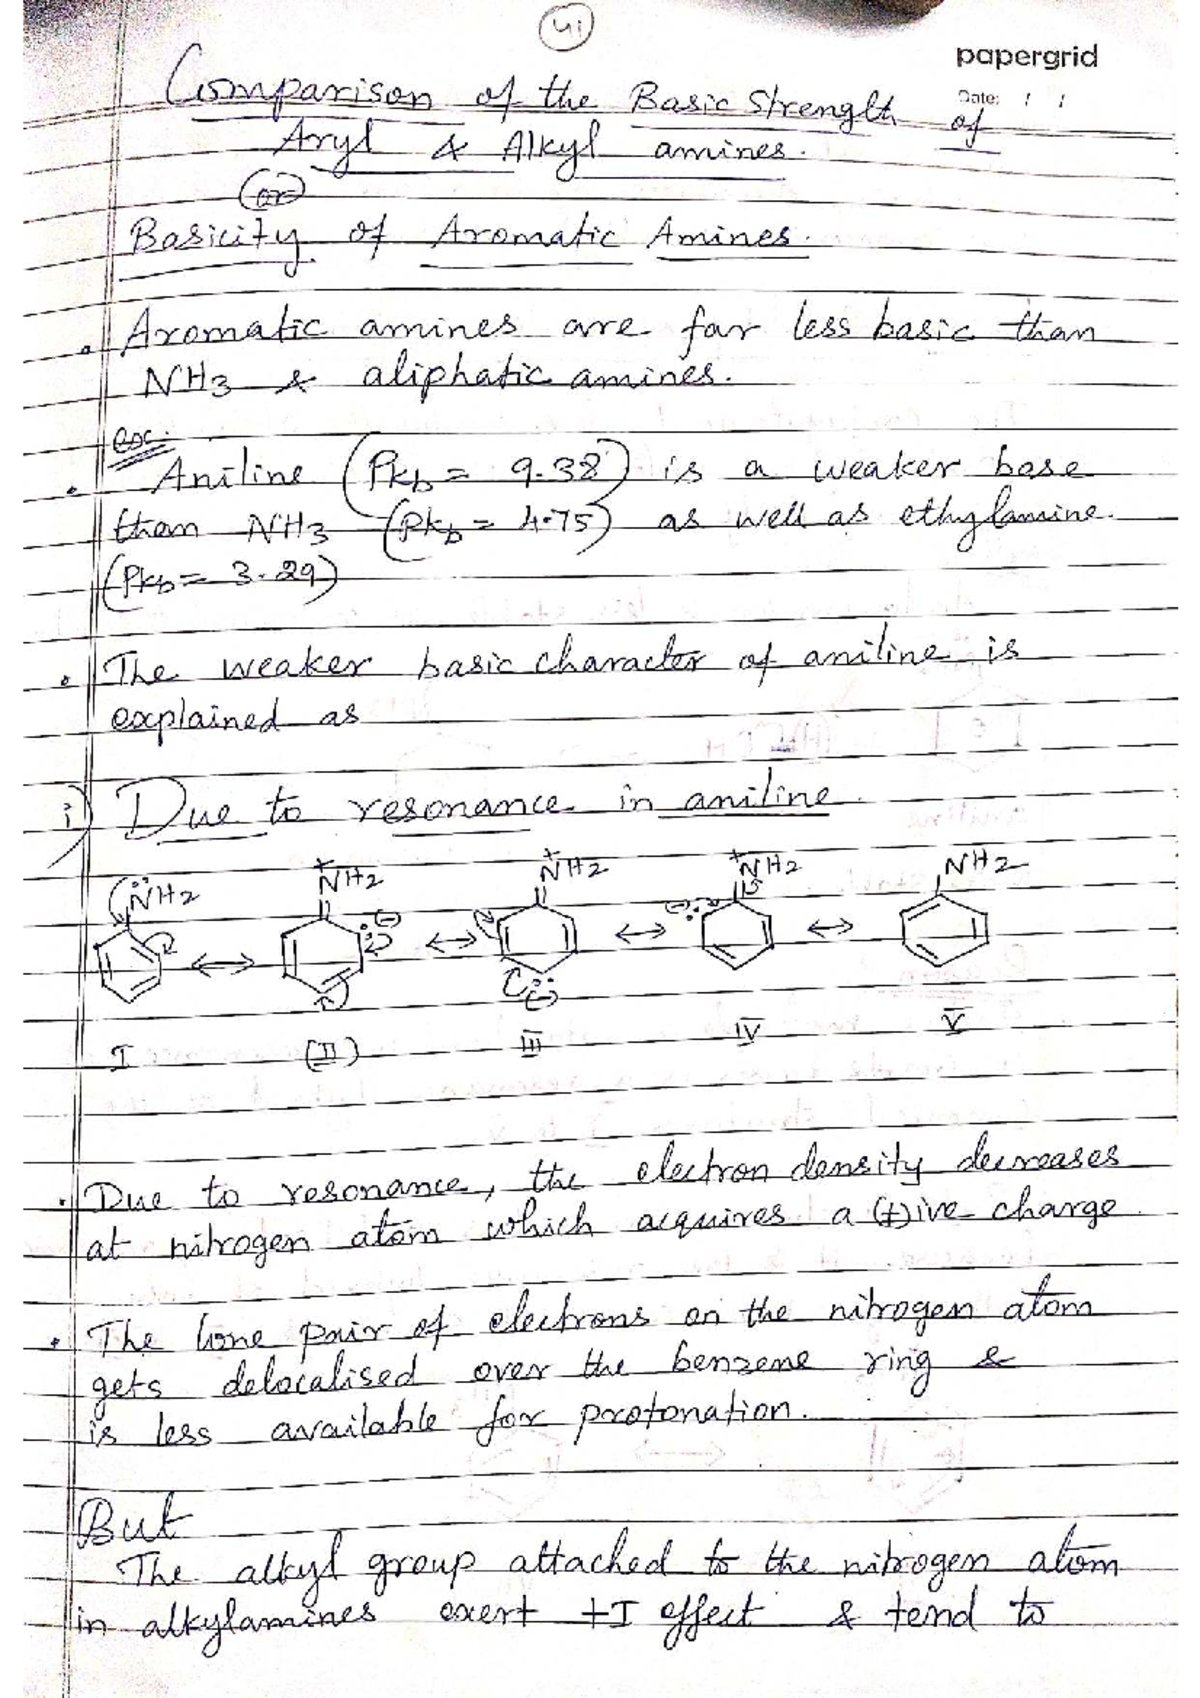 41
papergrid
Date: / /
Comparison of the Basic Strength of
Aryl & Alkyl amines.
(or)
Basicity of Aromatic Amines.
• Aromatic amines are far less basic than
NH3 & aliphatic amines.
ex:
• Aniline (Pkb = 9.38) is a weaker base
than NH3 (Pkb = 4.75) as well as ethylamine.
(Pkb = 3.29)
• The weaker basic character of aniline is
explained as
i) Due to resonance in aniline.
NH2 +NH2 +NH2 +NH2 NH2
I (II) III IV V
• Due to resonance, the electron density decreases
at nitrogen atom which acquires a (+)ive charge.
• The lone pair of electrons on the nitrogen atom
gets delocalised over the benzene ring &
is less available for protonation.
But
The alkyl group attached to the nitrogen atom
in alkylamines exert +I effect & tend to